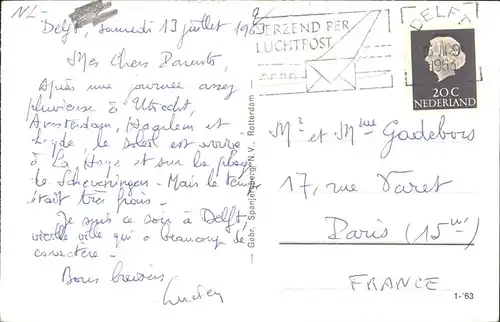 NL -
Delft, samedi 13 juillet 1963
Mes Chers Parents,
Après une journée assez
pluvieuse à Utrecht,
Amsterdam, Haarlem et
Leyde, le soleil est arrivé
à La Haye et sur la plage
de Scheveningen - Mais le temps
était très frais -
Je suis ce soir à Delft,
vieille ville qui a beaucoup de
caractère -
Bons baisers
Lucien
Gebr. Spanjersberg N.V., Rotterdam
VERZEND PER
LUCHTPOST
DELFT
1963
20C
NEDERLAND
Mr et Mme Gadebois
17, rue Varet
Paris (15me)
FRANCE
1-'63